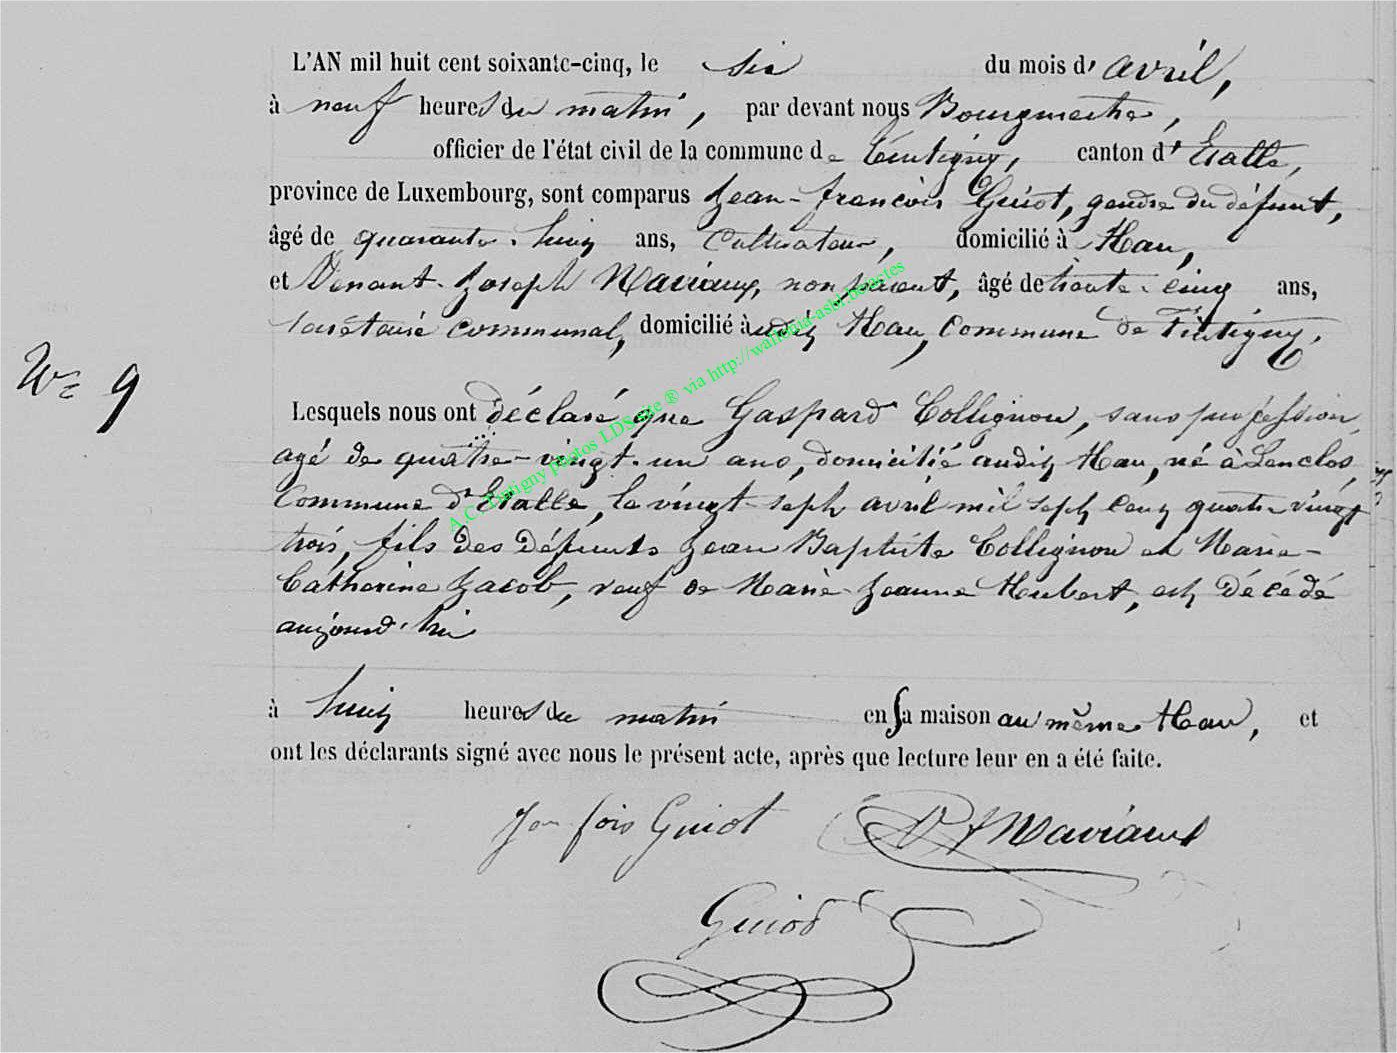 L'AN mil huit cent soixante-cinq, le six du mois d' avril,
à neuf heures du matin, par devant nous Bourgmestre,
officier de l'état civil de la commune de Tintigny, canton d' Etalle,
province de Luxembourg, sont comparus Jean-françois Guiot, gendre du défunt,
âgé de quarante-huit ans, cultivateur, domicilié à Han,
et Venant-Joseph non parent, âgé de trente-cinq ans,
secrétaire communal, domicilié audit Han, commune de Tintigny.
N° 9
Lesquels nous ont déclaré que Gaspard Collignon, sans profession,
agé de quatre-vingt-un ans, domicilié audit Han, né à Lenclos,
Commune d'Etalle, le vingt-sept avril mil sept cent quatre vingt
trois, fils des défunts Jean Baptiste Collignon et Marie-
Catherine Jacob, veuf de Marie-Jeanne Hubert, est décédé
aujourd'hui
à huit heures du matin en sa maison au même Han, et
ont les déclarants signé avec nous le présent acte, après que lecture leur en a été faite.
A.C. Tintigny photos LDS site ® via http://wallonia-asbl.be/actes
Jean fois Guiot
Guiot